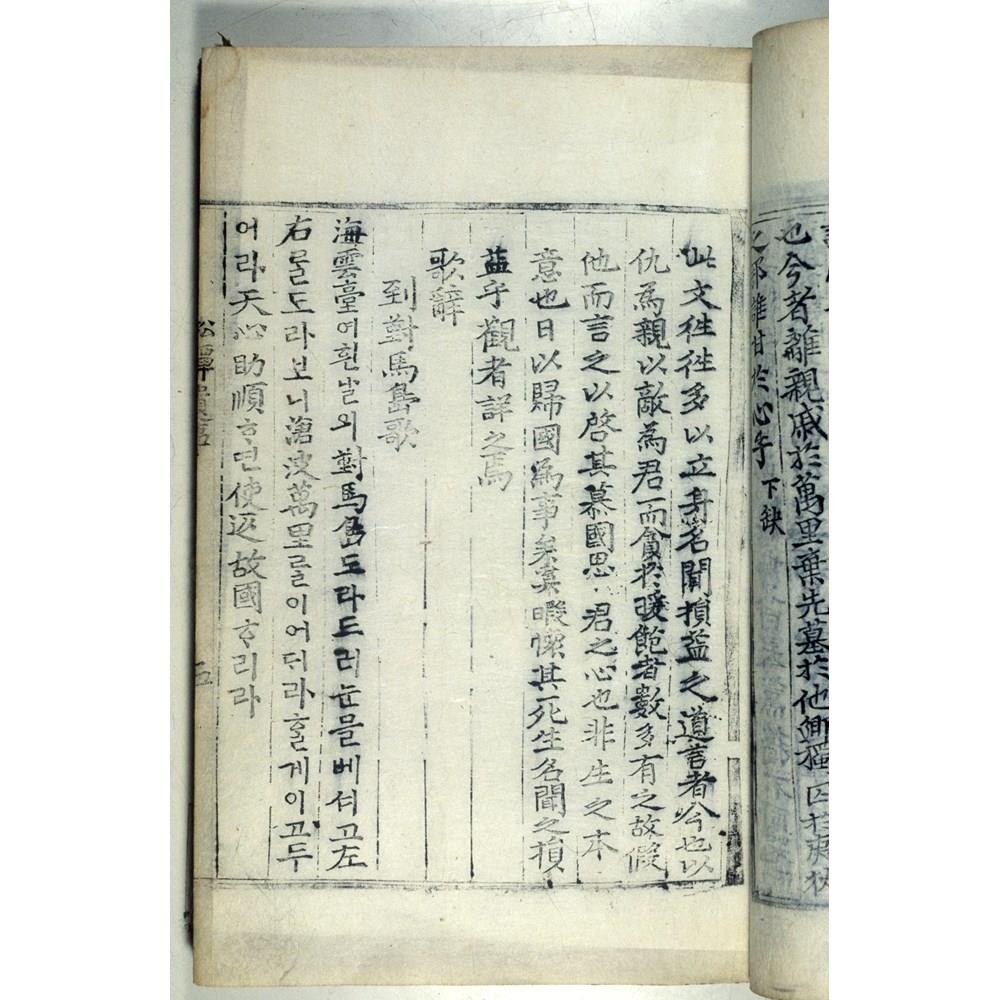 也今者離親戚於萬里棄先墓於他鄕獨囚於夷狄
之邦誰甘於心乎 下缺
此文徃徃多以立身名聞損益之道言者今也以
仇爲親以敵爲君而貪於暖飽者數多有之故假
他而言之以啓其慕國思君之心也非生之本
意也日以歸國爲事矣奚暇懷其死生名聞之損
益乎觀者詳之焉
歌辭
到對馬島歌
海雲臺여흰날의對馬島도라드러눈믈베셔고左
右ᄅᆞᆯ도라보니滄波萬里ᄅᆞᆯ이어ᄃᆡ라ᄒᆞᆯ게이고두
어라天心助順ᄒᆞ면使返故國ᄒᆞ리라
五